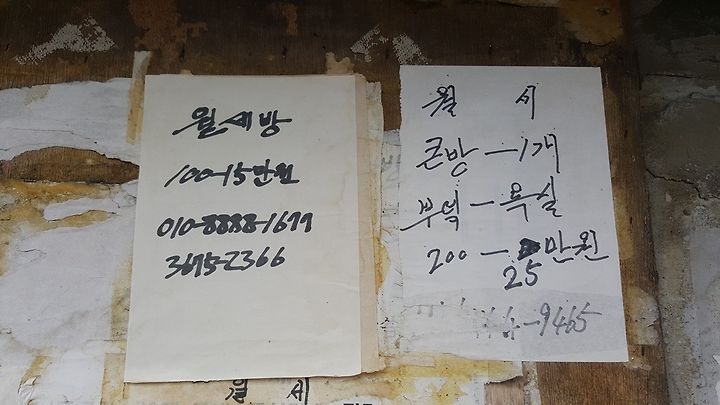 월세방
100-15만원
010-8888-1679
3675-2366
월 세
큰방 - 1개
부엌 - 욕실
200 - 만원
25
-9465
월 세